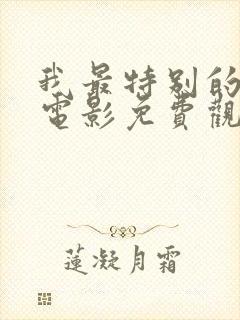 我最特别的
電影免費觀
蓮凝月霜